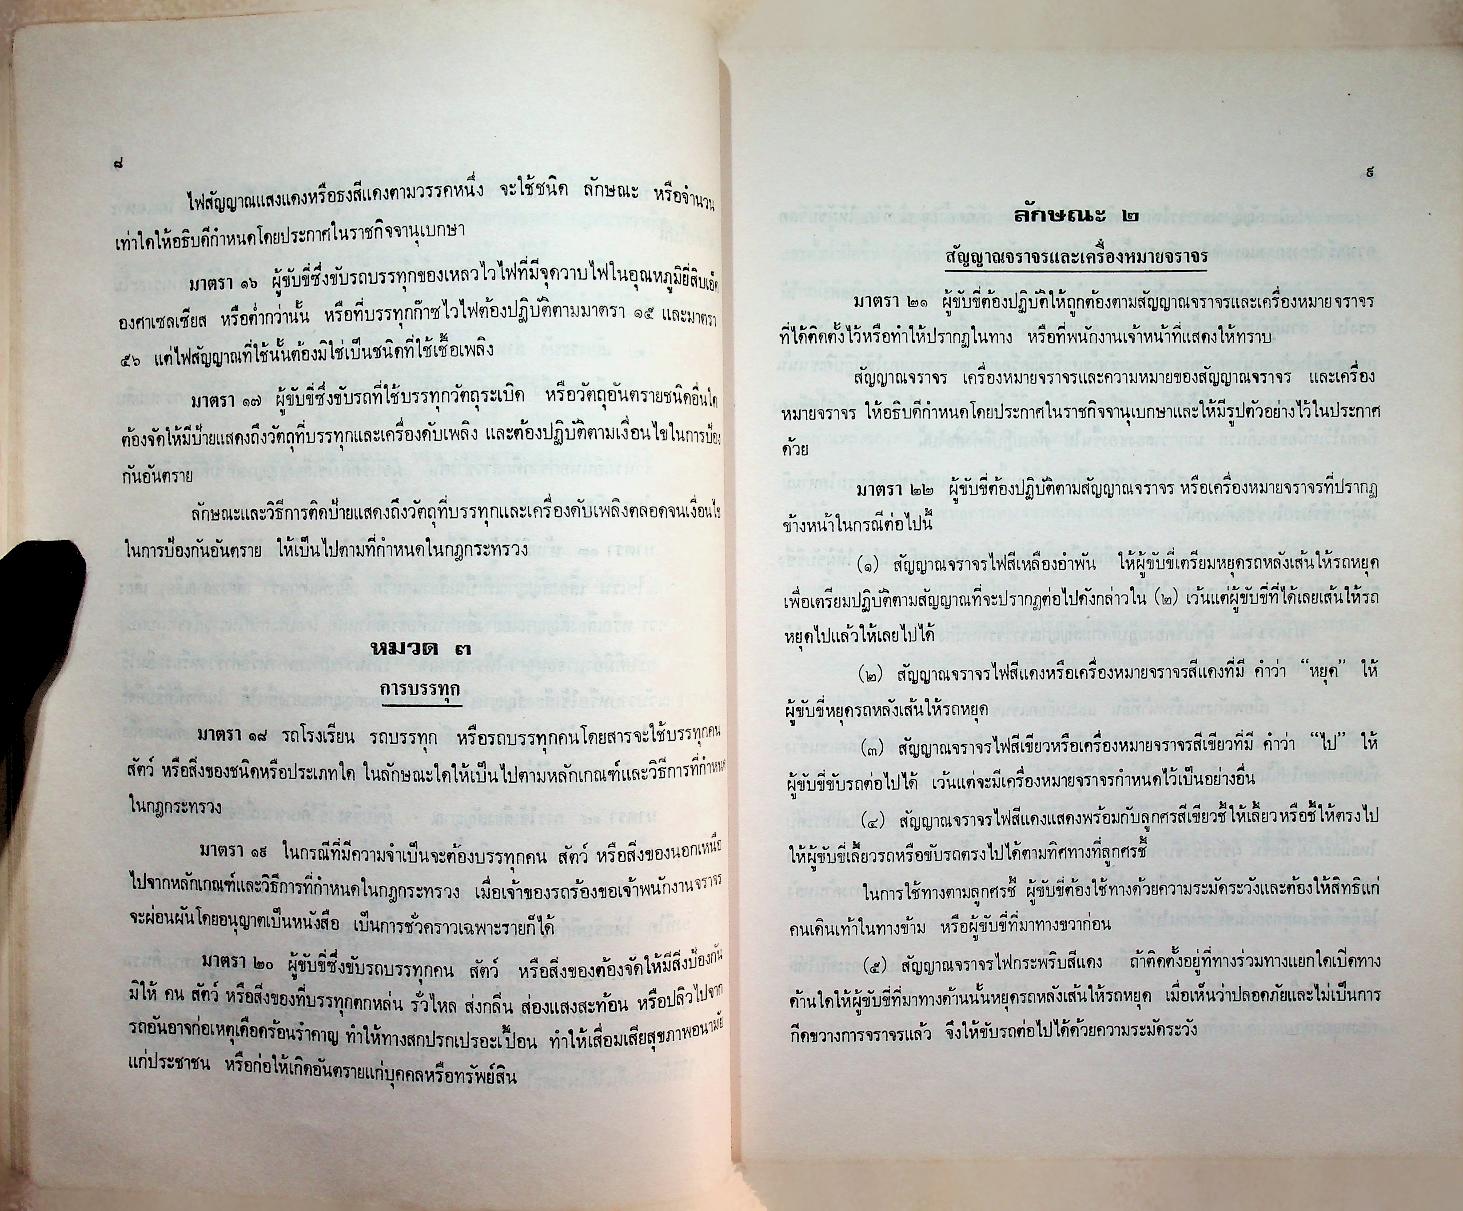 ๘
ไฟสัญญาณแสงแดงหรือธงสีแดงตามวรรคหนึ่ง จะใช้ชนิด ลักษณะ หรือจำนวน
เท่าใดให้อธิบดีกำหนดโดยประกาศในราชกิจจานุเบกษา
มาตรา ๑๖ ผู้ขับขี่ซึ่งขับรถบรรทุกของเหลวไวไฟที่มีจุดวาบไฟในอุณหภูมิยี่สิบเอ็ด
องศาเซลเซียส หรือต่ำกว่านั้น หรือที่บรรทุกก๊าซไวไฟต้องปฏิบัติตามมาตรา ๑๕ และมาตรา
๕๖ แต่ไฟสัญญาณที่ใช้นั้นต้องมิใช่เป็นชนิดที่ใช้เชื้อเพลิง
มาตรา ๑๗ ผู้ขับขี่ซึ่งขับรถที่ใช้บรรทุกวัตถุระเบิด หรือวัตถุอันตรายชนิดอื่นใด
ต้องจัดให้มีป้ายแสดงถึงวัตถุที่บรรทุกและเครื่องดับเพลิง และต้องปฏิบัติตามเงื่อนไขในการป้อง
กันอันตราย
ลักษณะและวิธีการติดป้ายแสดงถึงวัตถุที่บรรทุกและเครื่องดับเพลิงตลอดจนเงื่อนไข
ในการป้องกันอันตราย ให้เป็นไปตามที่กำหนดในกฎกระทรวง
หมวด ๓
การบรรทุก
มาตรา ๑๘ รถโรงเรียน รถบรรทุก หรือรถบรรทุกคนโดยสารจะใช้บรรทุกคน
สัตว์ หรือสิ่งของชนิดหรือประเภทใด ในลักษณะใดให้เป็นไปตามหลักเกณฑ์และวิธีการที่กำหนด
ในกฎกระทรวง
มาตรา ๑๙ ในกรณีที่มีความจำเป็นจะต้องบรรทุกคน สัตว์ หรือสิ่งของนอกเหนือ
ไปจากหลักเกณฑ์และวิธีการที่กำหนดในกฎกระทรวง เมื่อเจ้าของรถร้องขอเจ้าพนักงานจราจร
จะผ่อนผันโดยอนุญาตเป็นหนังสือ เป็นการชั่วคราวเฉพาะรายก็ได้
มาตรา ๒๐ ผู้ขับขี่ซึ่งขับรถบรรทุกคน สัตว์ หรือสิ่งของต้องจัดให้มีสิ่งป้องกัน
มิให้ คน สัตว์ หรือสิ่งของที่บรรทุกตกหล่น รั่วไหล ส่งกลิ่น ส่องแสงสะท้อน หรือปลิวไปจาก
รถอันอาจก่อเหตุเดือดร้อนรำคาญ ทำให้ทางสกปรกเปรอะเปื้อน ทำให้เสื่อมเสียสุขภาพอนามัย
แก่ประชาชน หรือก่อให้เกิดอันตรายแก่บุคคลหรือทรัพย์สิน
๙
ลักษณะ ๒
สัญญาณจราจรและเครื่องหมายจราจร
มาตรา ๒๑ ผู้ขับขี่ต้องปฏิบัติให้ถูกต้องตามสัญญาณจราจรและเครื่องหมายจราจร
ที่ได้ติดตั้งไว้หรือทำให้ปรากฏในทาง หรือที่พนักงานเจ้าหน้าที่แสดงให้ทราบ
สัญญาณจราจร เครื่องหมายจราจรและความหมายของสัญญาณจราจร และเครื่อง
หมายจราจร ให้อธิบดีกำหนดโดยประกาศในราชกิจจานุเบกษาและให้มีรูปตัวอย่างไว้ในประกาศ
ด้วย
มาตรา ๒๒ ผู้ขับขี่ต้องปฏิบัติตามสัญญาณจราจร หรือเครื่องหมายจราจรที่ปรากฏ
ข้างหน้าในกรณีต่อไปนี้
(๑) สัญญาณจราจรไฟสีเหลืองอำพัน ให้ผู้ขับขี่เตรียมหยุดรถหลังเส้นให้รถหยุด
เพื่อเตรียมปฏิบัติตามสัญญาณที่จะปรากฏต่อไปดังกล่าวใน (๒) เว้นแต่ผู้ขับขี่ที่ได้เลยเส้นให้รถ
หยุดไปแล้วให้เลยไปได้
(๒) สัญญาณจราจรไฟสีแดงหรือเครื่องหมายจราจรสีแดงที่มี คำว่า “หยุด” ให้
ผู้ขับขี่หยุดรถหลังเส้นให้รถหยุด
(๓) สัญญาณจราจรไฟสีเขียวหรือเครื่องหมายจราจรสีเขียวที่มี คำว่า “ไป” ให้
ผู้ขับขี่ขับรถต่อไปได้ เว้นแต่จะมีเครื่องหมายจราจรกำหนดไว้เป็นอย่างอื่น
(๔) สัญญาณจราจรไฟสีแดงแสดงพร้อมกับลูกศรสีเขียวชี้ให้เลี้ยวหรือชี้ให้ตรงไป
ให้ผู้ขับขี่เลี้ยวรถหรือขับรถตรงไปได้ตามทิศทางที่ลูกศรชี้
ในการใช้ทางตามลูกศรชี้ ผู้ขับขี่ต้องใช้ทางด้วยความระมัดระวังและต้องให้สิทธิแก่
คนเดินเท้าในทางข้าม หรือผู้ขับขี่ที่มาทางขวาก่อน
(๕) สัญญาณจราจรไฟกระพริบสีแดง ถ้าติดตั้งอยู่ที่ทางร่วมทางแยกใดเปิดทาง
ด้านใดให้ผู้ขับขี่ที่มาทางด้านนั้นหยุดรถหลังเส้นให้รถหยุด เมื่อเห็นว่าปลอดภัยและไม่เป็นการ
กีดขวางการจราจรแล้ว จึงให้ขับรถต่อไปได้ด้วยความระมัดระวัง